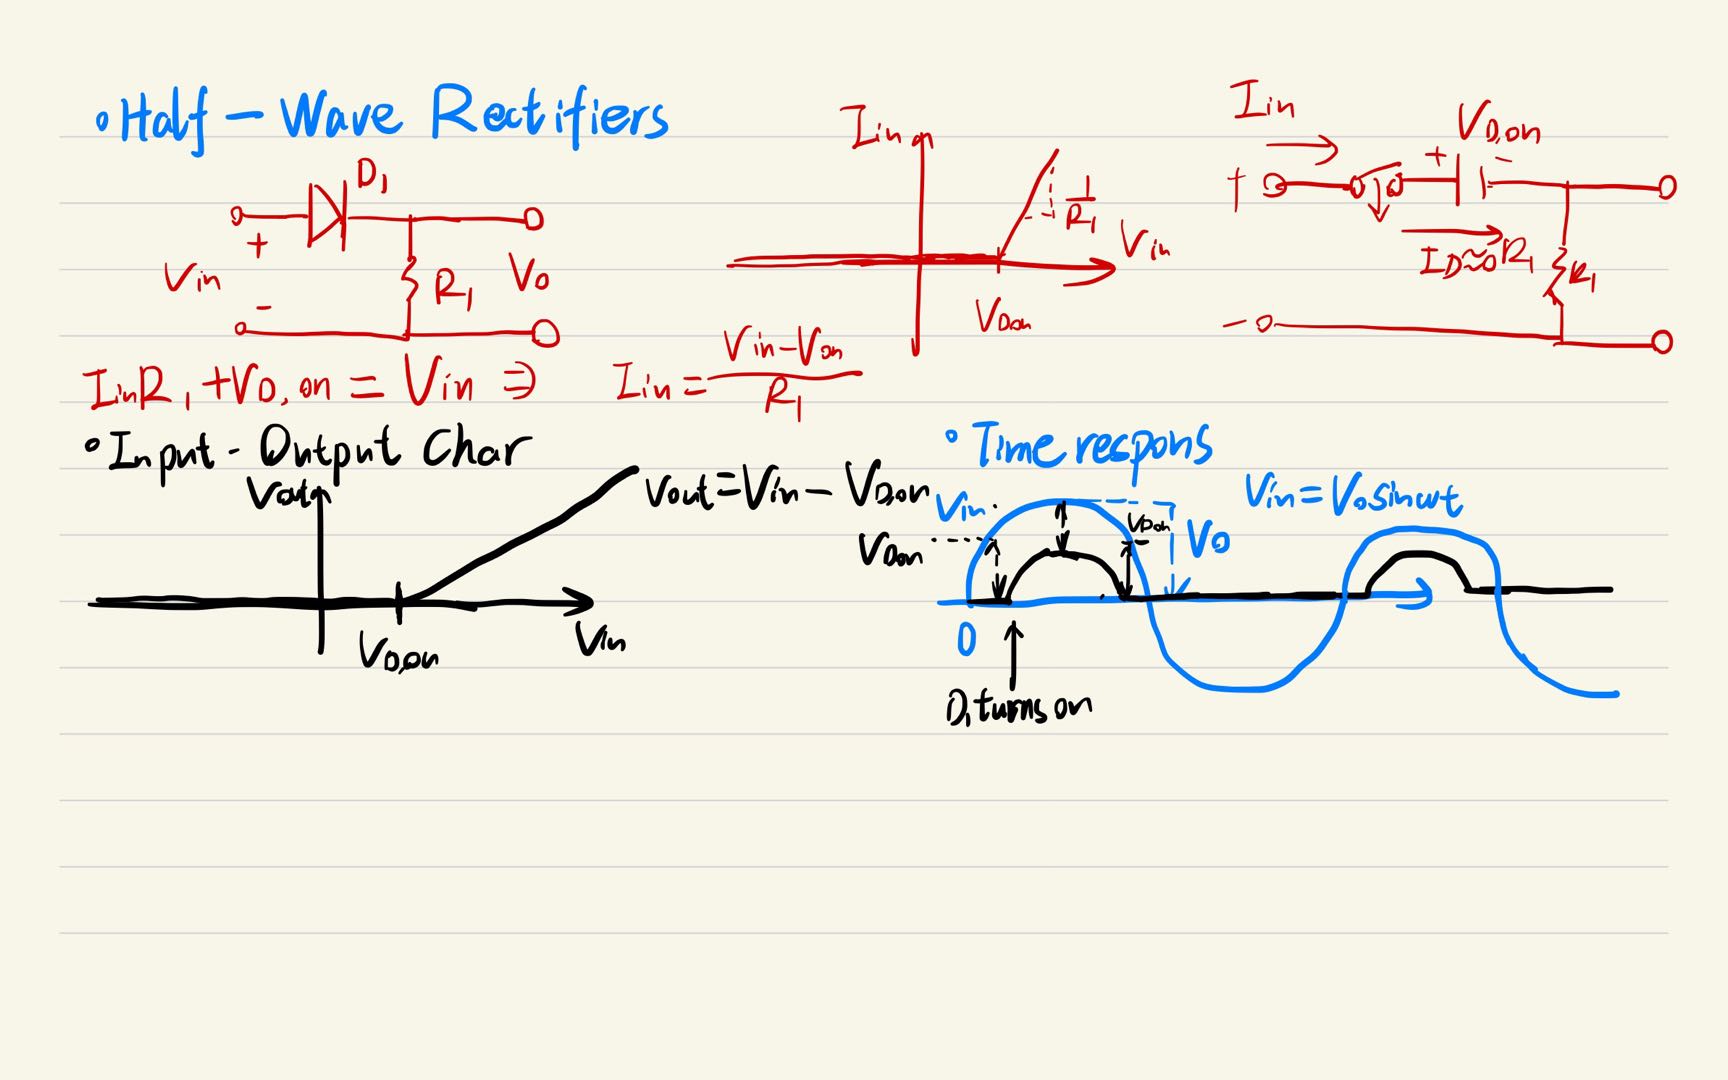 • Half - Wave Rectifiers
D1
+
Vin
-
R1
Vo
Iin
1/R1
Vin
VD,on
Iin
VD,on
+ -
+
ID≈0 R1
R1
-
IinR1 + VD,on = Vin ⇒ Iin = (Vin - Von)/R1
• Input - Output Char
Vout
Vout = Vin - VD,on
VD,on
Vin
• Time respons
Vin = Vo sin wt
Vin
VD,on
VD,on
Vo
0
D1 turns on